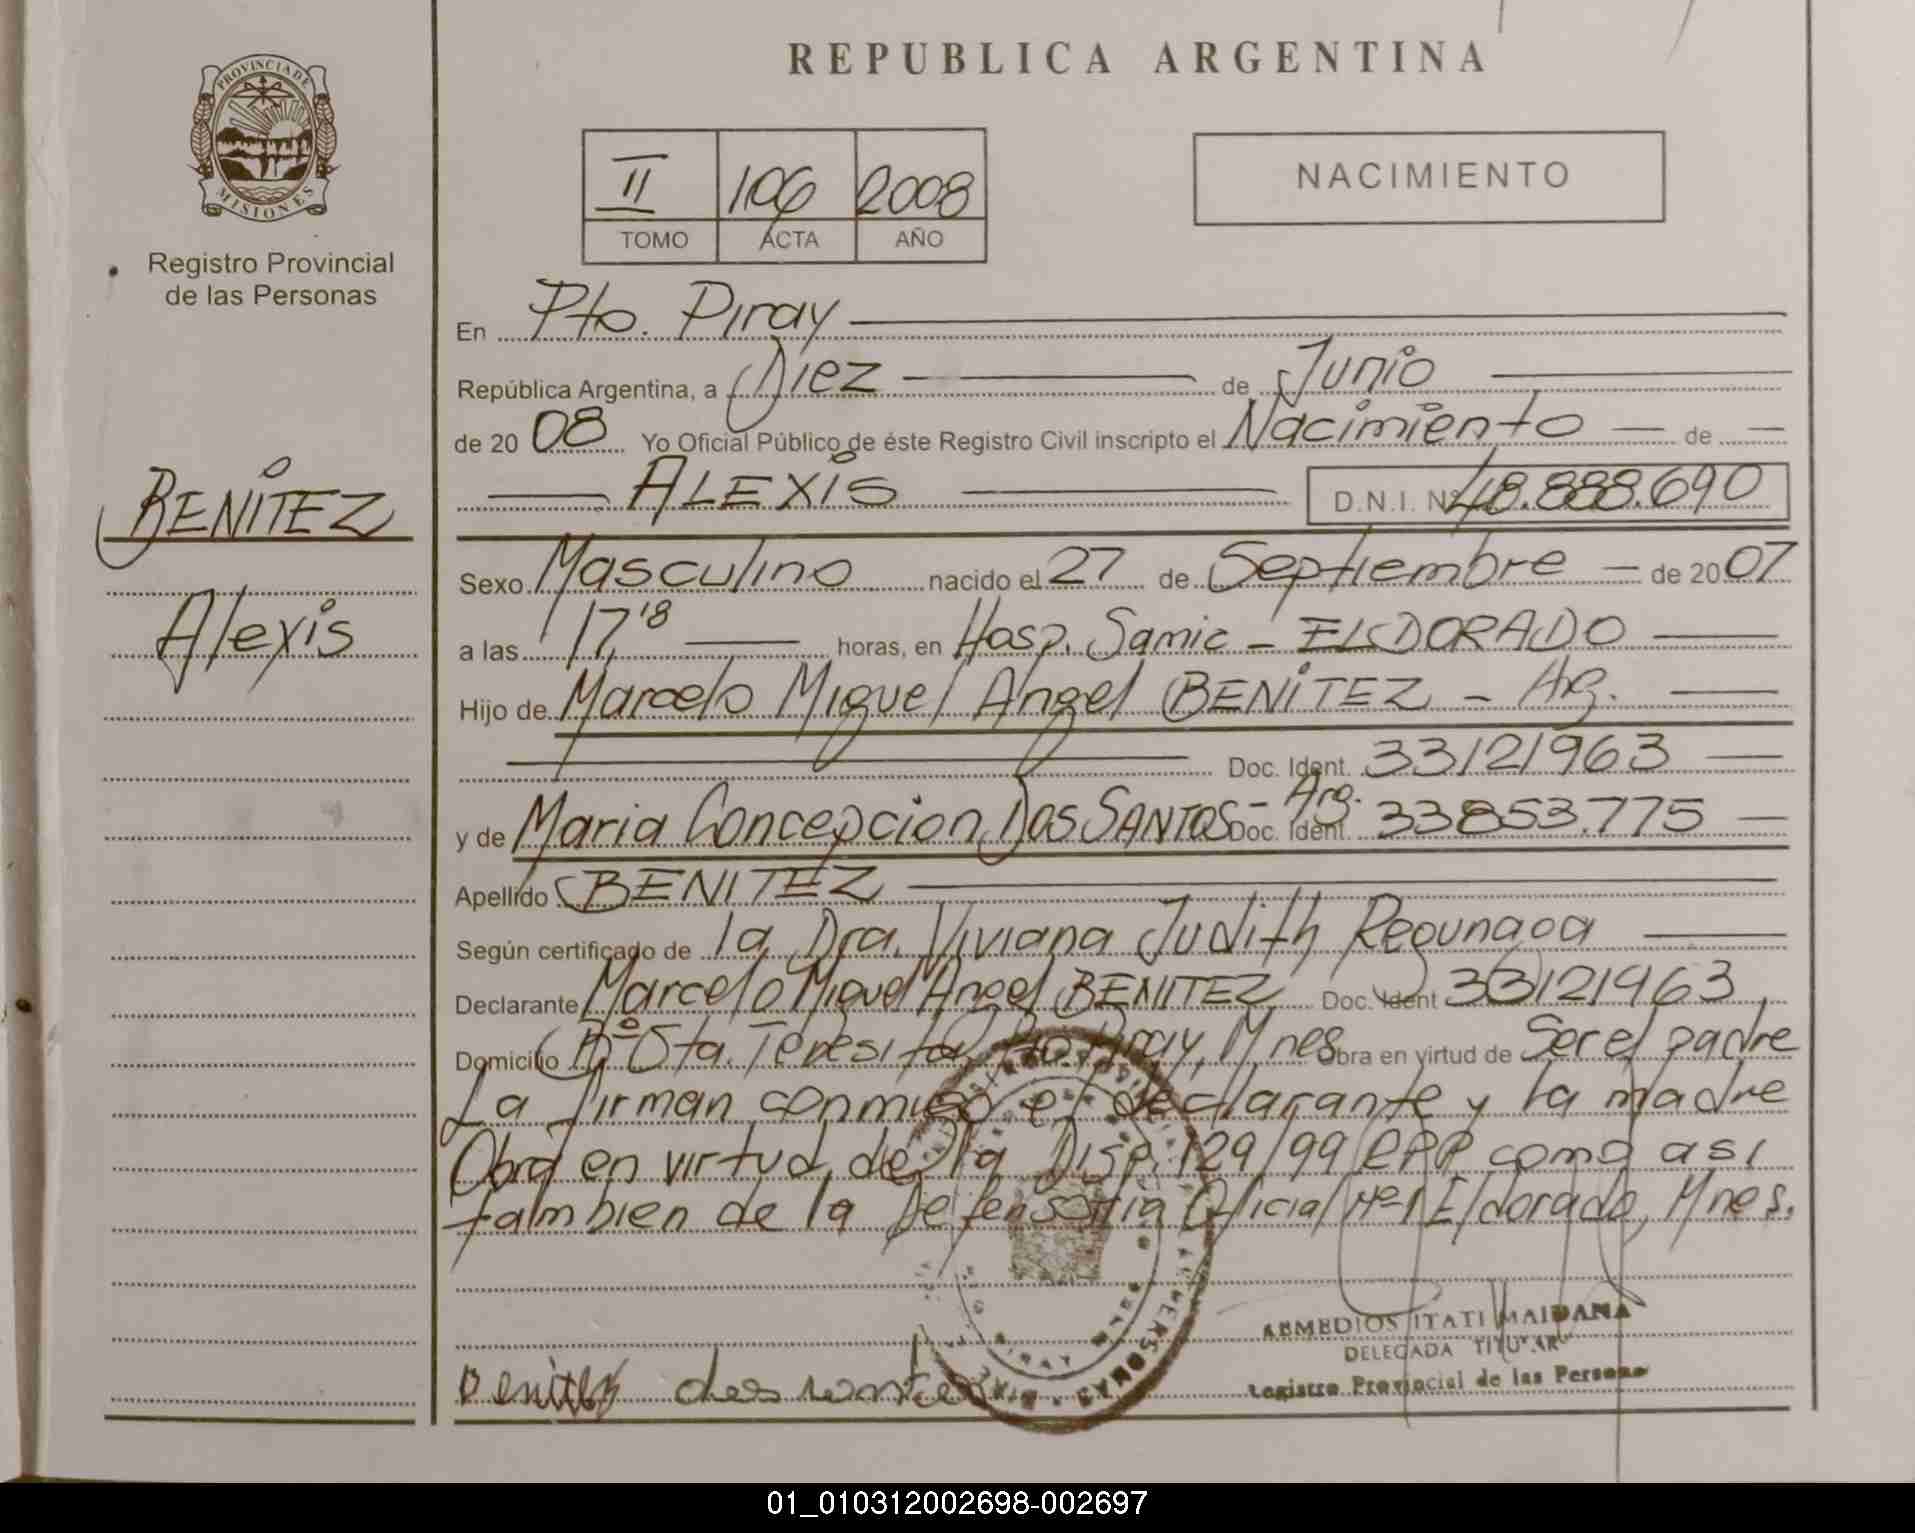 PROVINCIA DE
MISIONES
Registro Provincial
de las Personas
BENITEZ
Alexis
REPUBLICA ARGENTINA
II 106 2008
TOMO ACTA AÑO
NACIMIENTO
En Pto. Piray
República Argentina, a Diez de Junio
de 2008 Yo Oficial Público de éste Registro Civil inscripto el Nacimiento de
ALEXIS D.N.I. Nº 48.888.690
Sexo Masculino nacido el 27 de Septiembre de 2007
a las 17,18 horas, en Hosp. Samic - ELDORADO
Hijo de Marcelo Miguel Angel BENITEZ - Arg.
Doc. Ident. 33121963
y de Maria Concepcion DOS SANTOS - Arg. Doc. Ident. 33853.775
Apellido BENITEZ
Según certificado de la Dra. Viviana Judith
Declarante Marcelo Miguel Angel BENITEZ Doc. Ident 33121963
Domicilio Bº Sta. Teresita, Pto. Piray, Mnes Obra en virtud de Ser el padre
La firman conmigo el declarante y la madre
Obra en virtud de la Disp. 129/99 RPP como asi
tambien de la Defensoria Oficial Nº 1 Eldorado, Mnes.
ITATI MAIDANA
DELEGADA TITULAR
Registro Provincial de las Personas
Benitez dos santos
01_010312002698-002697